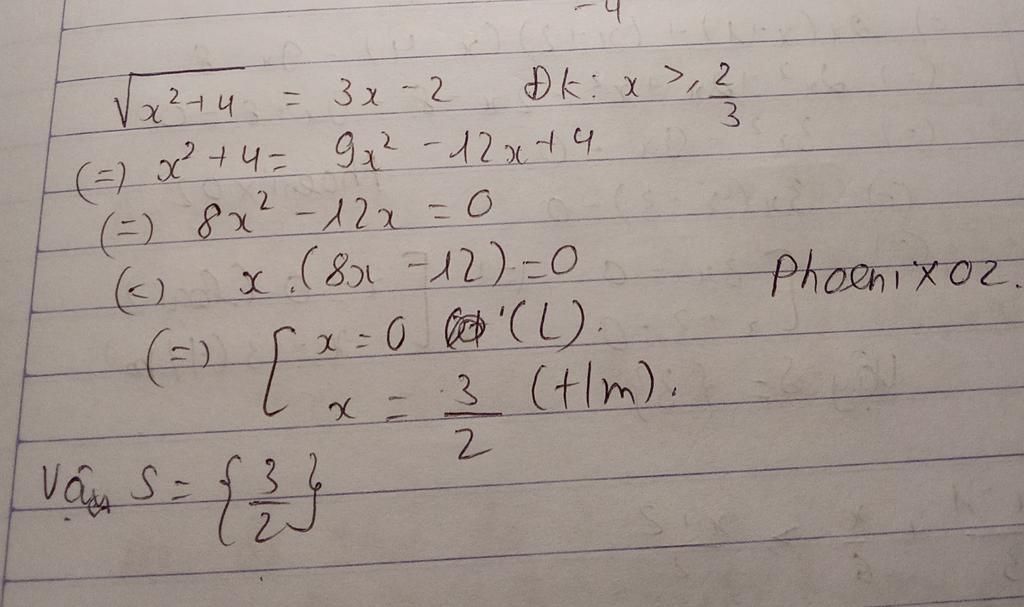 -4
√x²+4 = 3x - 2 Đk: x ≥ 2/3
(=) x² + 4 = 9x² - 12x + 4
(=) 8x² - 12x = 0
(<) x . (8x - 12) = 0
Phoenix02.
(=) [ x = 0 (L).
x = 3/2 (t/m).
Vậy S = {3/2}